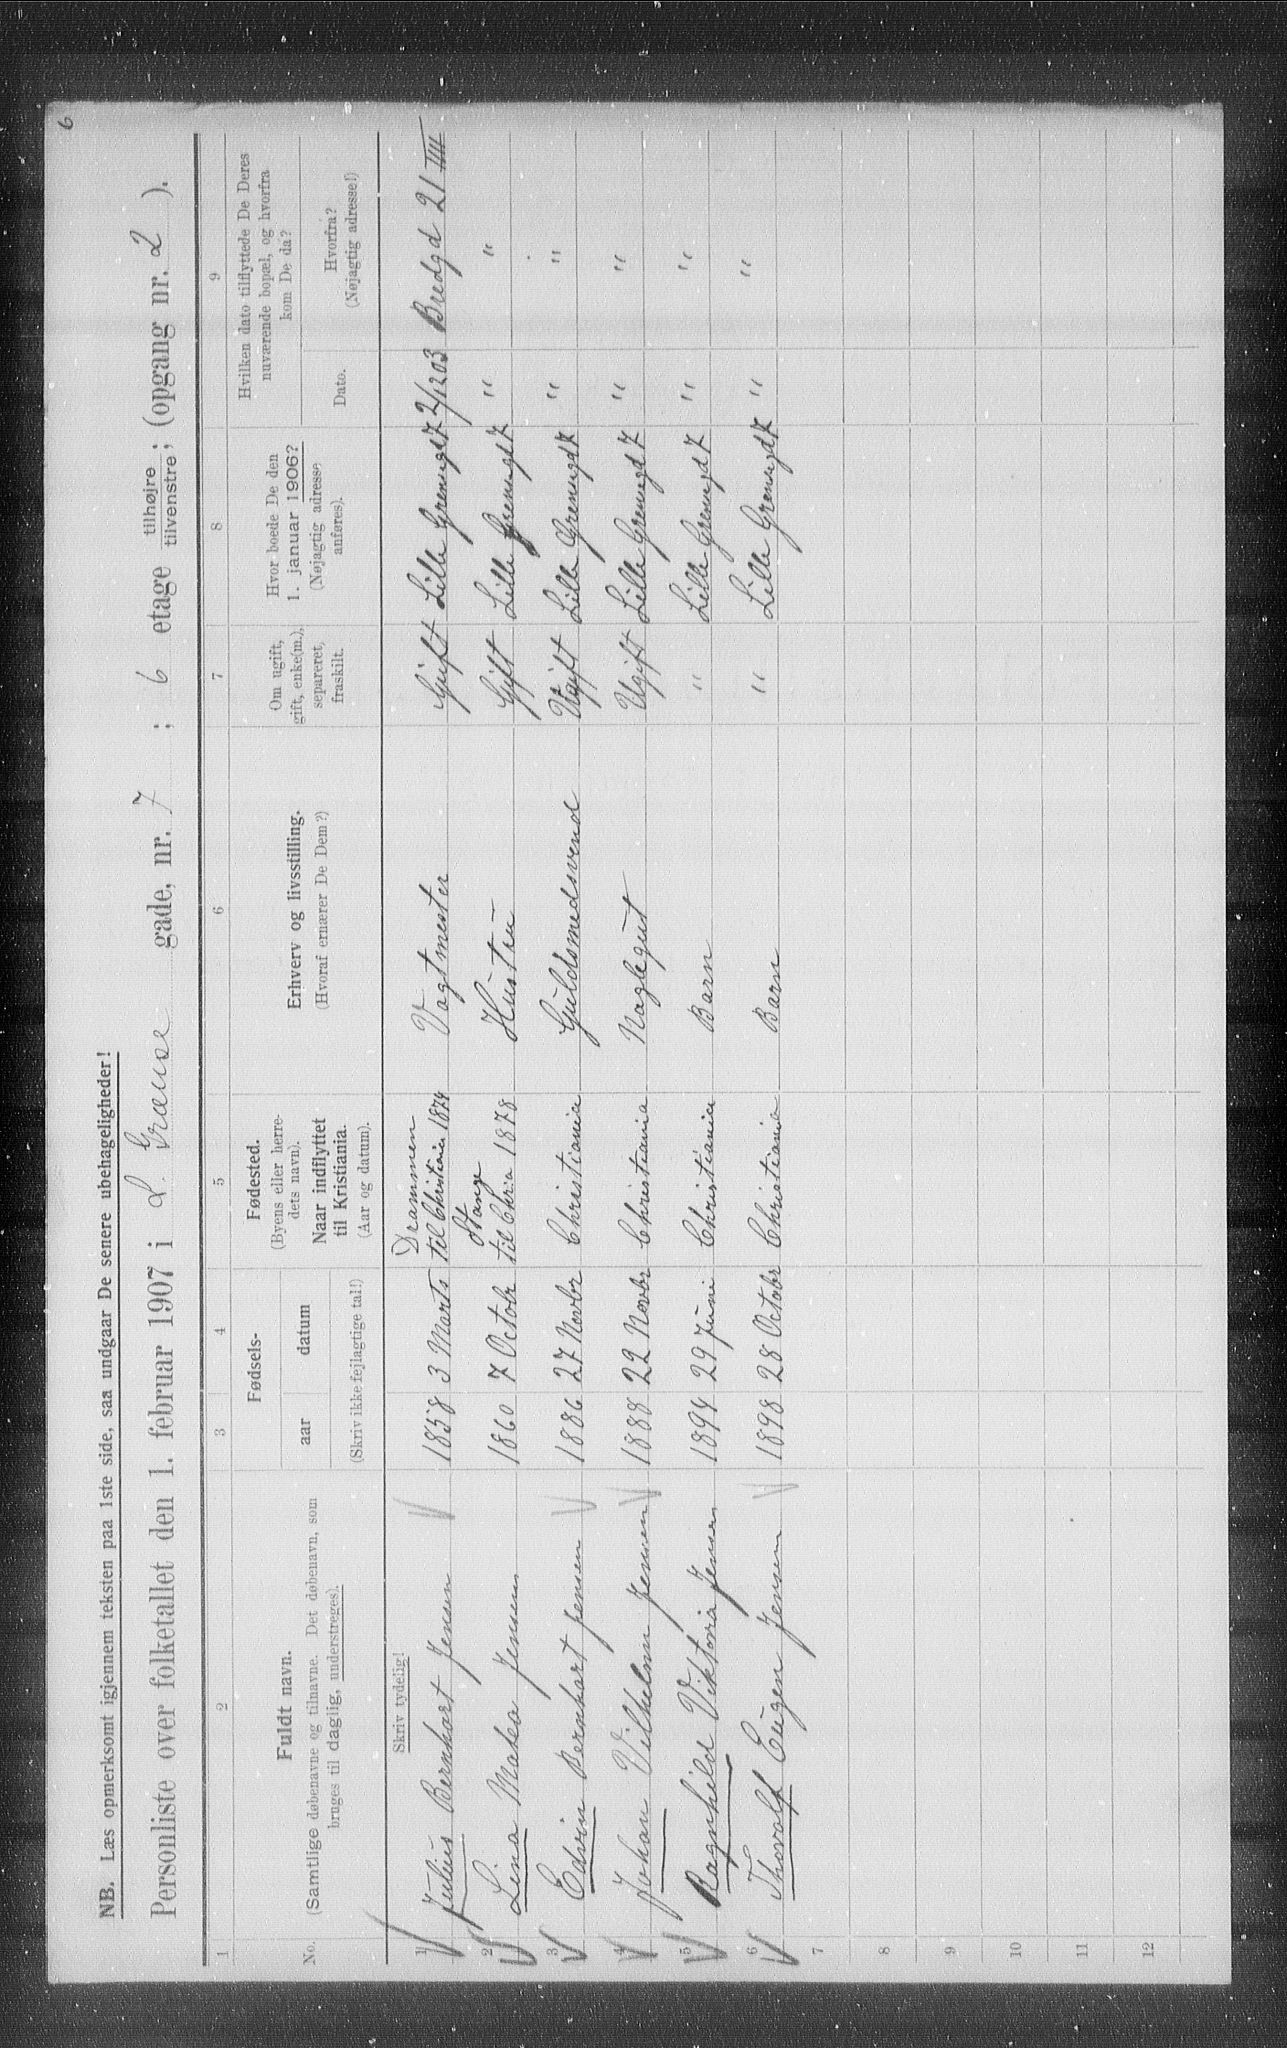 6
NB. Læs opmerksomt igjennem teksten paa 1ste side, saa undgaar De senere ubehageligheder!
Personliste over folketallet den 1. februar 1907 i L. Grænse gade, nr. 7 ; 6 etage tilhøjre tilvenstre; (opgang nr. 2 ).
1 2 3 4 5 6 7 8 9
No.
Fuldt navn.
(Samtlige døbenavne og tilnavne. Det døbenavn, som
bruges til daglig, understreges).
Fødsels-
aar datum
(Skriv ikke fejlagtige tal!)
Fødested.
(Byens eller herre-
dets navn).
Naar indflyttet
til Kristiania.
(Aar og datum).
Erhverv og livsstilling.
(Hvoraf ernærer De Dem?)
Om ugift,
gift, enke(m.),
separeret,
fraskilt.
Hvor boede De den
1. januar 1906?
(Nøjagtig adresse
anføres).
Hvilken dato tilflyttede De Deres
nuværende bopæl, og hvorfra
kom De da?
Dato.
Hvorfra?
(Nøjagtig adresse!)
Skriv tydelig!
1 Julius Bernhart Jensen 1858 3 Marts Drammen til Christiania 1874 Vagtmester Gift Lille Grensegd 7 2/12 03 Bredgd 21 IIII
2 Lina Matea Jensen 1860 7 Octobr Stange til Chria 1878 Hustru Gift Lille Grensegd 7 " "
3 Edvin Bernhart Jensen 1886 27 Novbr Christiania Guldsmedsvend Ugift Lille Grensegd 7 " "
4 Johan Vilhelm Jensen 1888 22 Novbr Christiania Naglegut Ugift Lille Grensegd 7 " "
5 Ragnhild Viktoria Jensen 1894 29 Juni Christiania Barn " Lille Grensegd 7 " "
6 Thoralf Eugen Jensen 1898 28 Octobr Christiania Barn " Lille Grensegd 7 " "
7
8
9
10
11
12